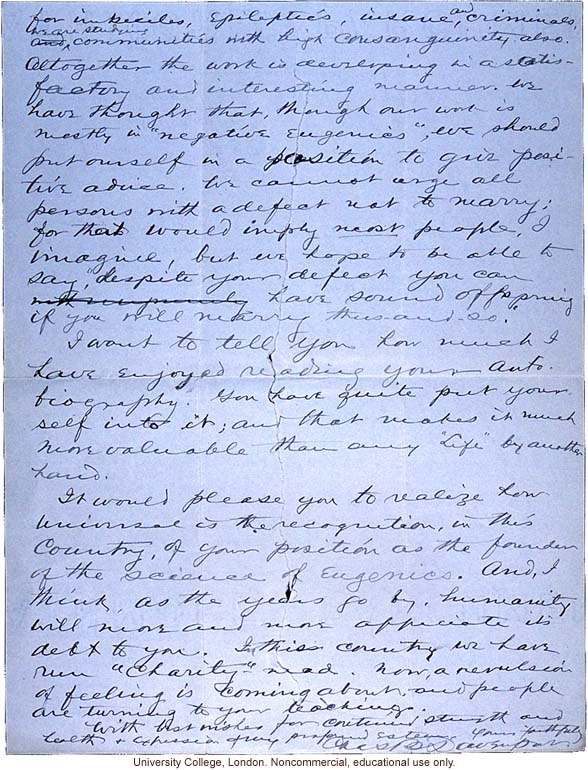 for imbeciles, epileptics, insane, and criminals,
we are studying
and, communities with high consanguinity also.
Altogether the work is developing in a satis-
factory and interesting manner. We
have thought that, though our work is
mostly in "negative Eugenics", we should
put ourself in a position to give posi-
tive advice. We cannot urge all
persons with a defect not to marry;
for that would imply most people, I
imagine, but we hope to be able to
say, "despite your defect you can
with impunity have sound offspring
if you will marry thus and so."
I want to tell you how much I
have enjoyed reading your auto-
biography. You have quite put your-
self into it; and that makes it much
more valuable than any "Life" by another
hand.
It would please you to realize how
universal is the recognition, in this
Country, of your position as the founder
of the science of Eugenics. And, I
think, as the years go by, humanity
will more and more appreciate its
debt to you. In this country we have
run "charity"-mad. Now, a revulsion
of feeling is coming about, and people
are turning to your teachings.
With best wishes for continued strength and
health & expression of my profound esteem, Yours faithfully
Chas B Davenport
University College, London. Noncommercial, educational use only.